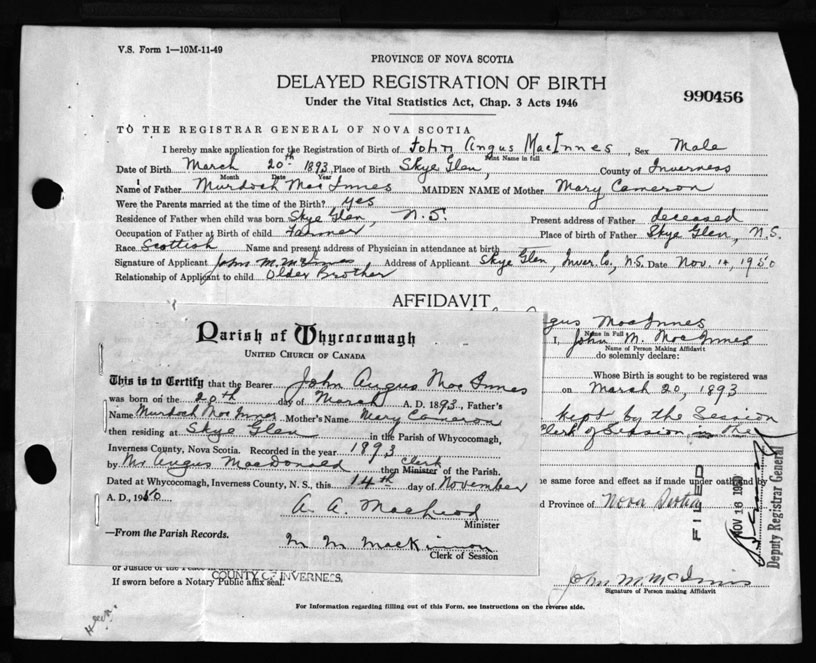 V.S. Form 1—10M-11-49
PROVINCE OF NOVA SCOTIA
DELAYED REGISTRATION OF BIRTH
990456
Under the Vital Statistics Act, Chap. 3 Acts 1946
TO THE REGISTRAR GENERAL OF NOVA SCOTIA
I hereby make application for the Registration of Birth of John Angus MacInnes, Sex Male
Print Name in full
Date of Birth March 20th 1893, Place of Birth Skye Glen, County of Inverness
Month Date Year
Name of Father Murdoch MacInnes MAIDEN NAME of Mother Mary Cameron
Were the Parents married at the time of the Birth? yes
Residence of Father when child was born Skye Glen, N.S. Present address of Father deceased
Occupation of Father at Birth of child Farmer Place of birth of Father Skye Glen, N.S.
Race Scottish Name and present address of Physician in attendance at birth
Signature of Applicant John M. McInnes Address of Applicant Skye Glen, Inver. Co., N.S. Date Nov. 14, 1950
Relationship of Applicant to child Older Brother
AFFIDAVIT
Angus MacInnes
Name in Full
I, John M. MacInnes
Name of Person Making Affidavit
do solemnly declare:
Whose Birth is sought to be registered was
on March 20, 1893
kept by the Session
Clerk of Session in the
me same force and effect as if made under oath and by
d Province of Nova Scotia
FILED
NOV 16 1950
Deputy Registrar General
Parish of Whycocomagh
UNITED CHURCH OF CANADA
This is to Certify that the Bearer John Angus MacInnes
was born on the 20th day of March A. D. 1893, Father's
Name Murdoch MacInnes Mother's Name Mary Cameron
then residing at Skye Glen in the Parish of Whycocomagh,
Inverness County, Nova Scotia. Recorded in the year 1893
by Mr Angus MacDonald then Clerk Minister of the Parish.
Dated at Whycocomagh, Inverness County, N. S., this 14th day of November
A. D., 1950
A. A. MacLeod
Minister
—From the Parish Records.
M M MacKinnon
Clerk of Session
or Justice of the Peace in
COUNTY OF INVERNESS.
If sworn before a Notary Public affix seal.
John M McInnis
Signature of Person making Affidavit
For Information regarding filling out of this Form, see instructions on the reverse side.